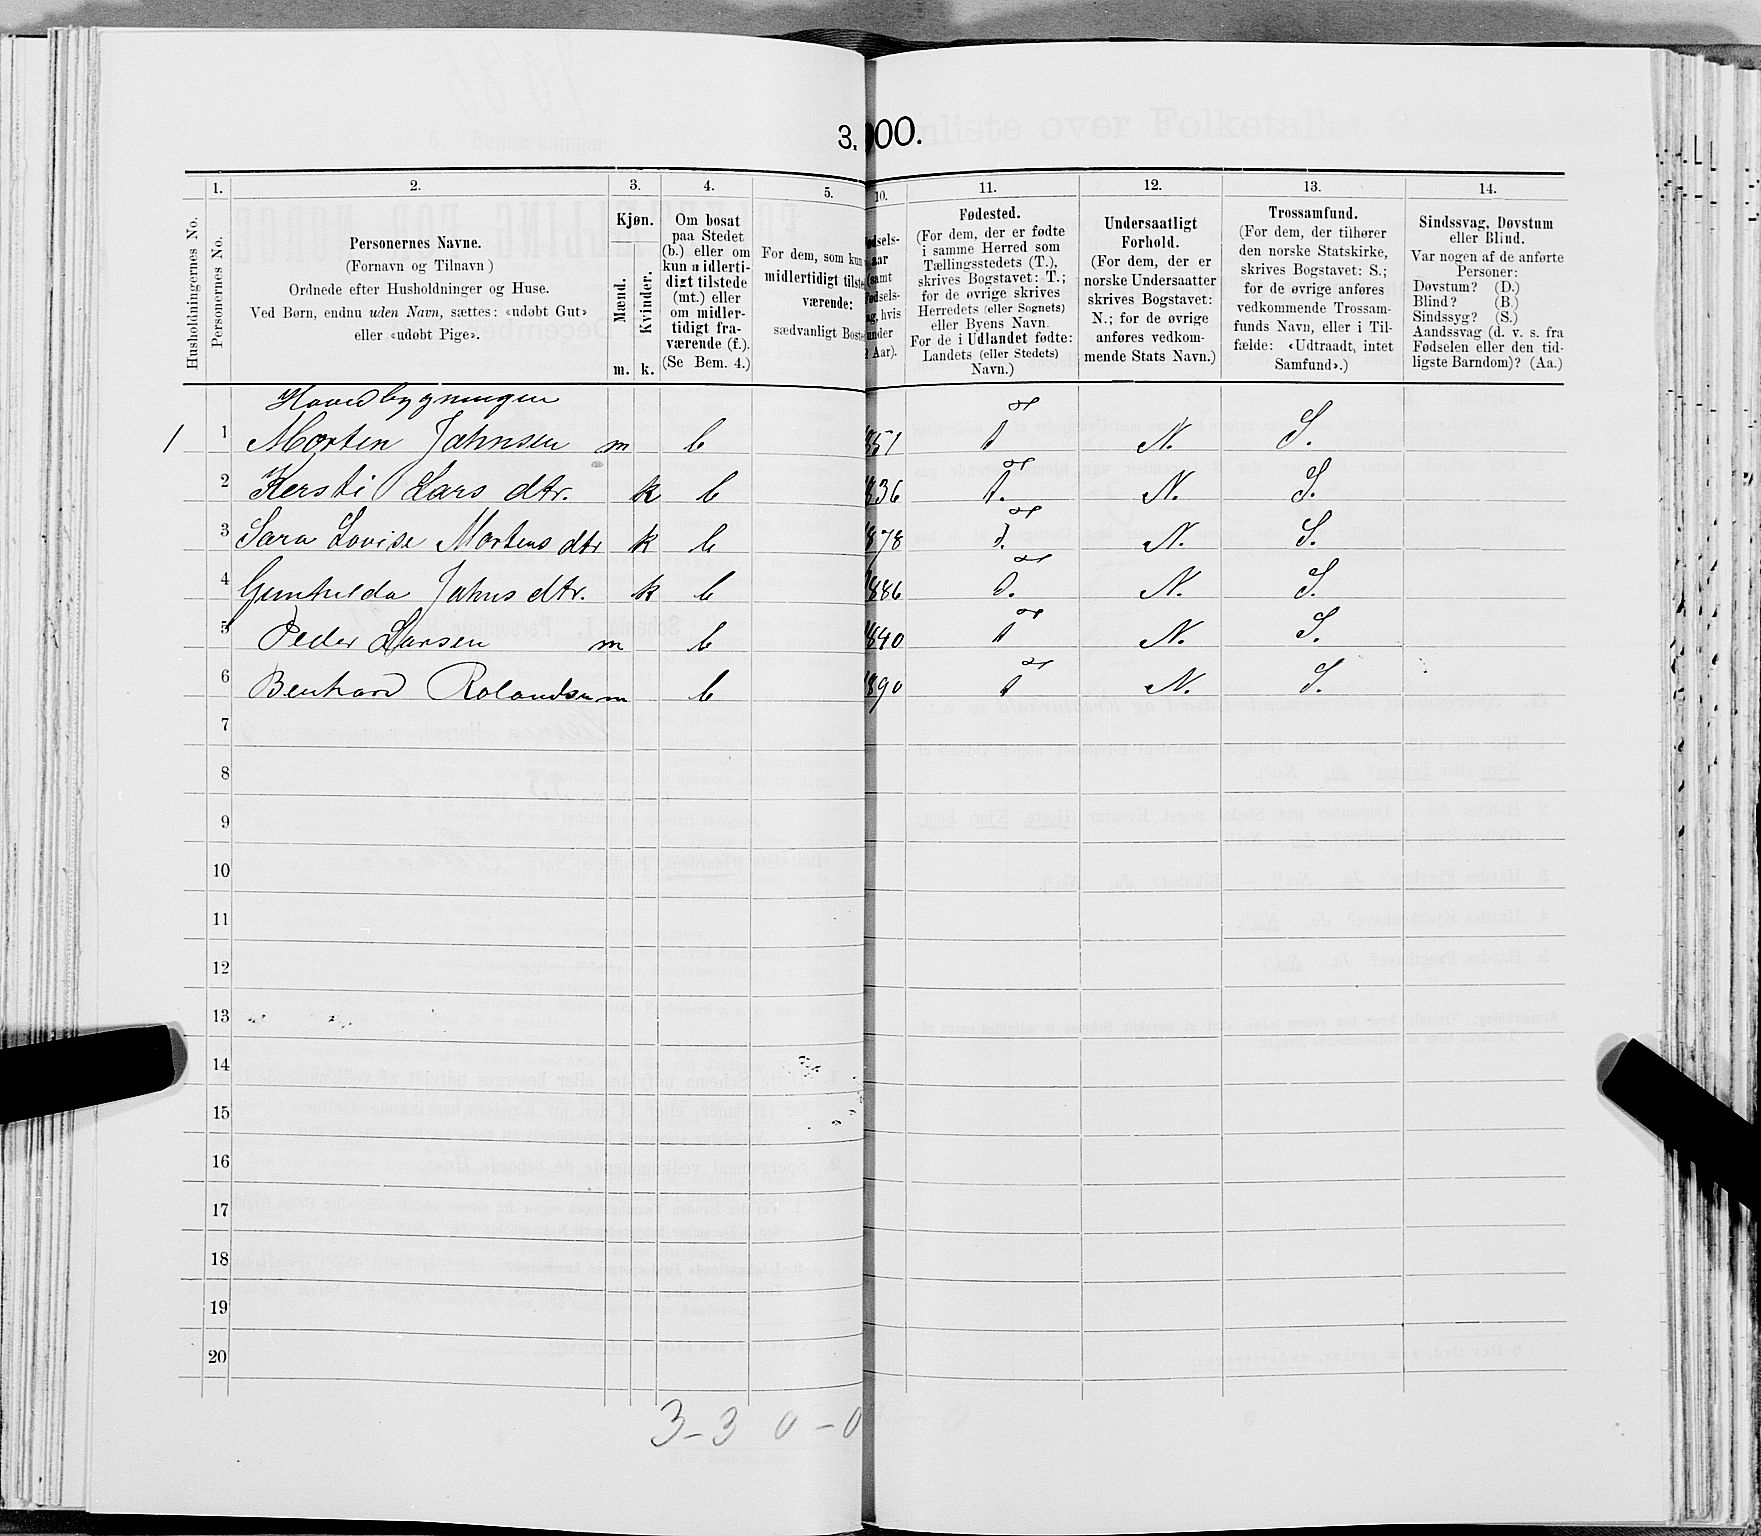 3.
00.
1.
2.
3.
4.
5.
10.
11.
12.
13.
14.
Husholdningernes No.
Personernes No.
Personernes Navne.
(Fornavn og Tilnavn)
Ordnede efter Husholdninger og Huse.
Ved Børn, endnu uden Navn, sættes: «udøbt Gut»
eller «udøbt Pige».
Kjøn.
Mænd.
Kvinder.
m.
k.
Om bosat
paa Stedet
(b.) eller om
kun midlerti-
digt tilstede
(mt.) eller
om midler-
tidigt fra-
værende (f.).
(Se Bem. 4.)
For dem, som kun
midlertidigt tilste
værende:
sædvanligt Boste
ødsels-
aar
(samt
ødsels-
ag, hvis
under
2 Aar).
Fødested.
(For dem, der er fødte
i samme Herred som
Tællingsstedets (T.),
skrives Bogstavet: T.;
for de øvrige skrives
Herredets (eller Sognets)
eller Byens Navn.
For de i Udlandet fødte:
Landets (eller Stedets)
Navn.)
Undersaatligt
Forhold.
(For dem, der er
norske Undersaatter
skrives Bogstavet:
N.; for de øvrige
anføres vedkom-
mende Stats Navn.)
Trossamfund.
(For dem, der tilhører
den norske Statskirke,
skrives Bogstavet: S.;
for de øvrige anføres
vedkommende Trossam-
funds Navn, eller i Til-
fælde: «Udtraadt, intet
Samfund».)
Sindssvag, Døvstum
eller Blind.
Var nogen af de anførte
Personer:
Døvstum? (D.)
Blind? (B.)
Sindssyg? (S.)
Aandssvag (d. v. s. fra
Fødselen eller den tid-
ligste Barndom)? (Aa.)
Hovedbygningen
1 1 Morten Jahnsen m b 851 T N. S.
2 Kersti Lars dtr. k b 836 T. N. S.
3 Sara Lovise Mortens dtr k b 878 T. N. S.
4 Gunhilda Jahns dtr. k b 886 T. N. S.
5 Peder Larsen m b 840 T N. S.
6 Benhard Rolandsen m b 890 T N. S.
7
8
9
10
11
12
13
14
15
16
17
18
19
20
3-3 0-0